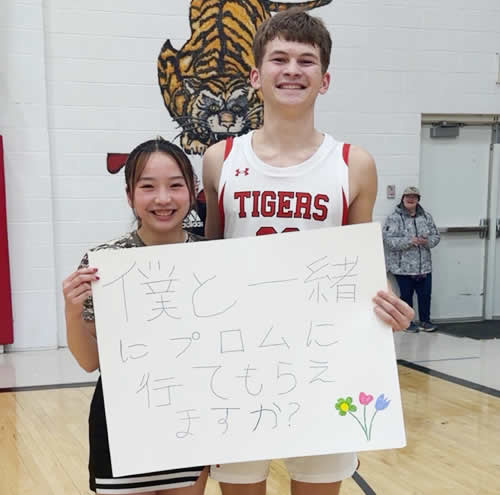 TIGERS
僕と一緒
にプロムに
行てもらえ
ますか?